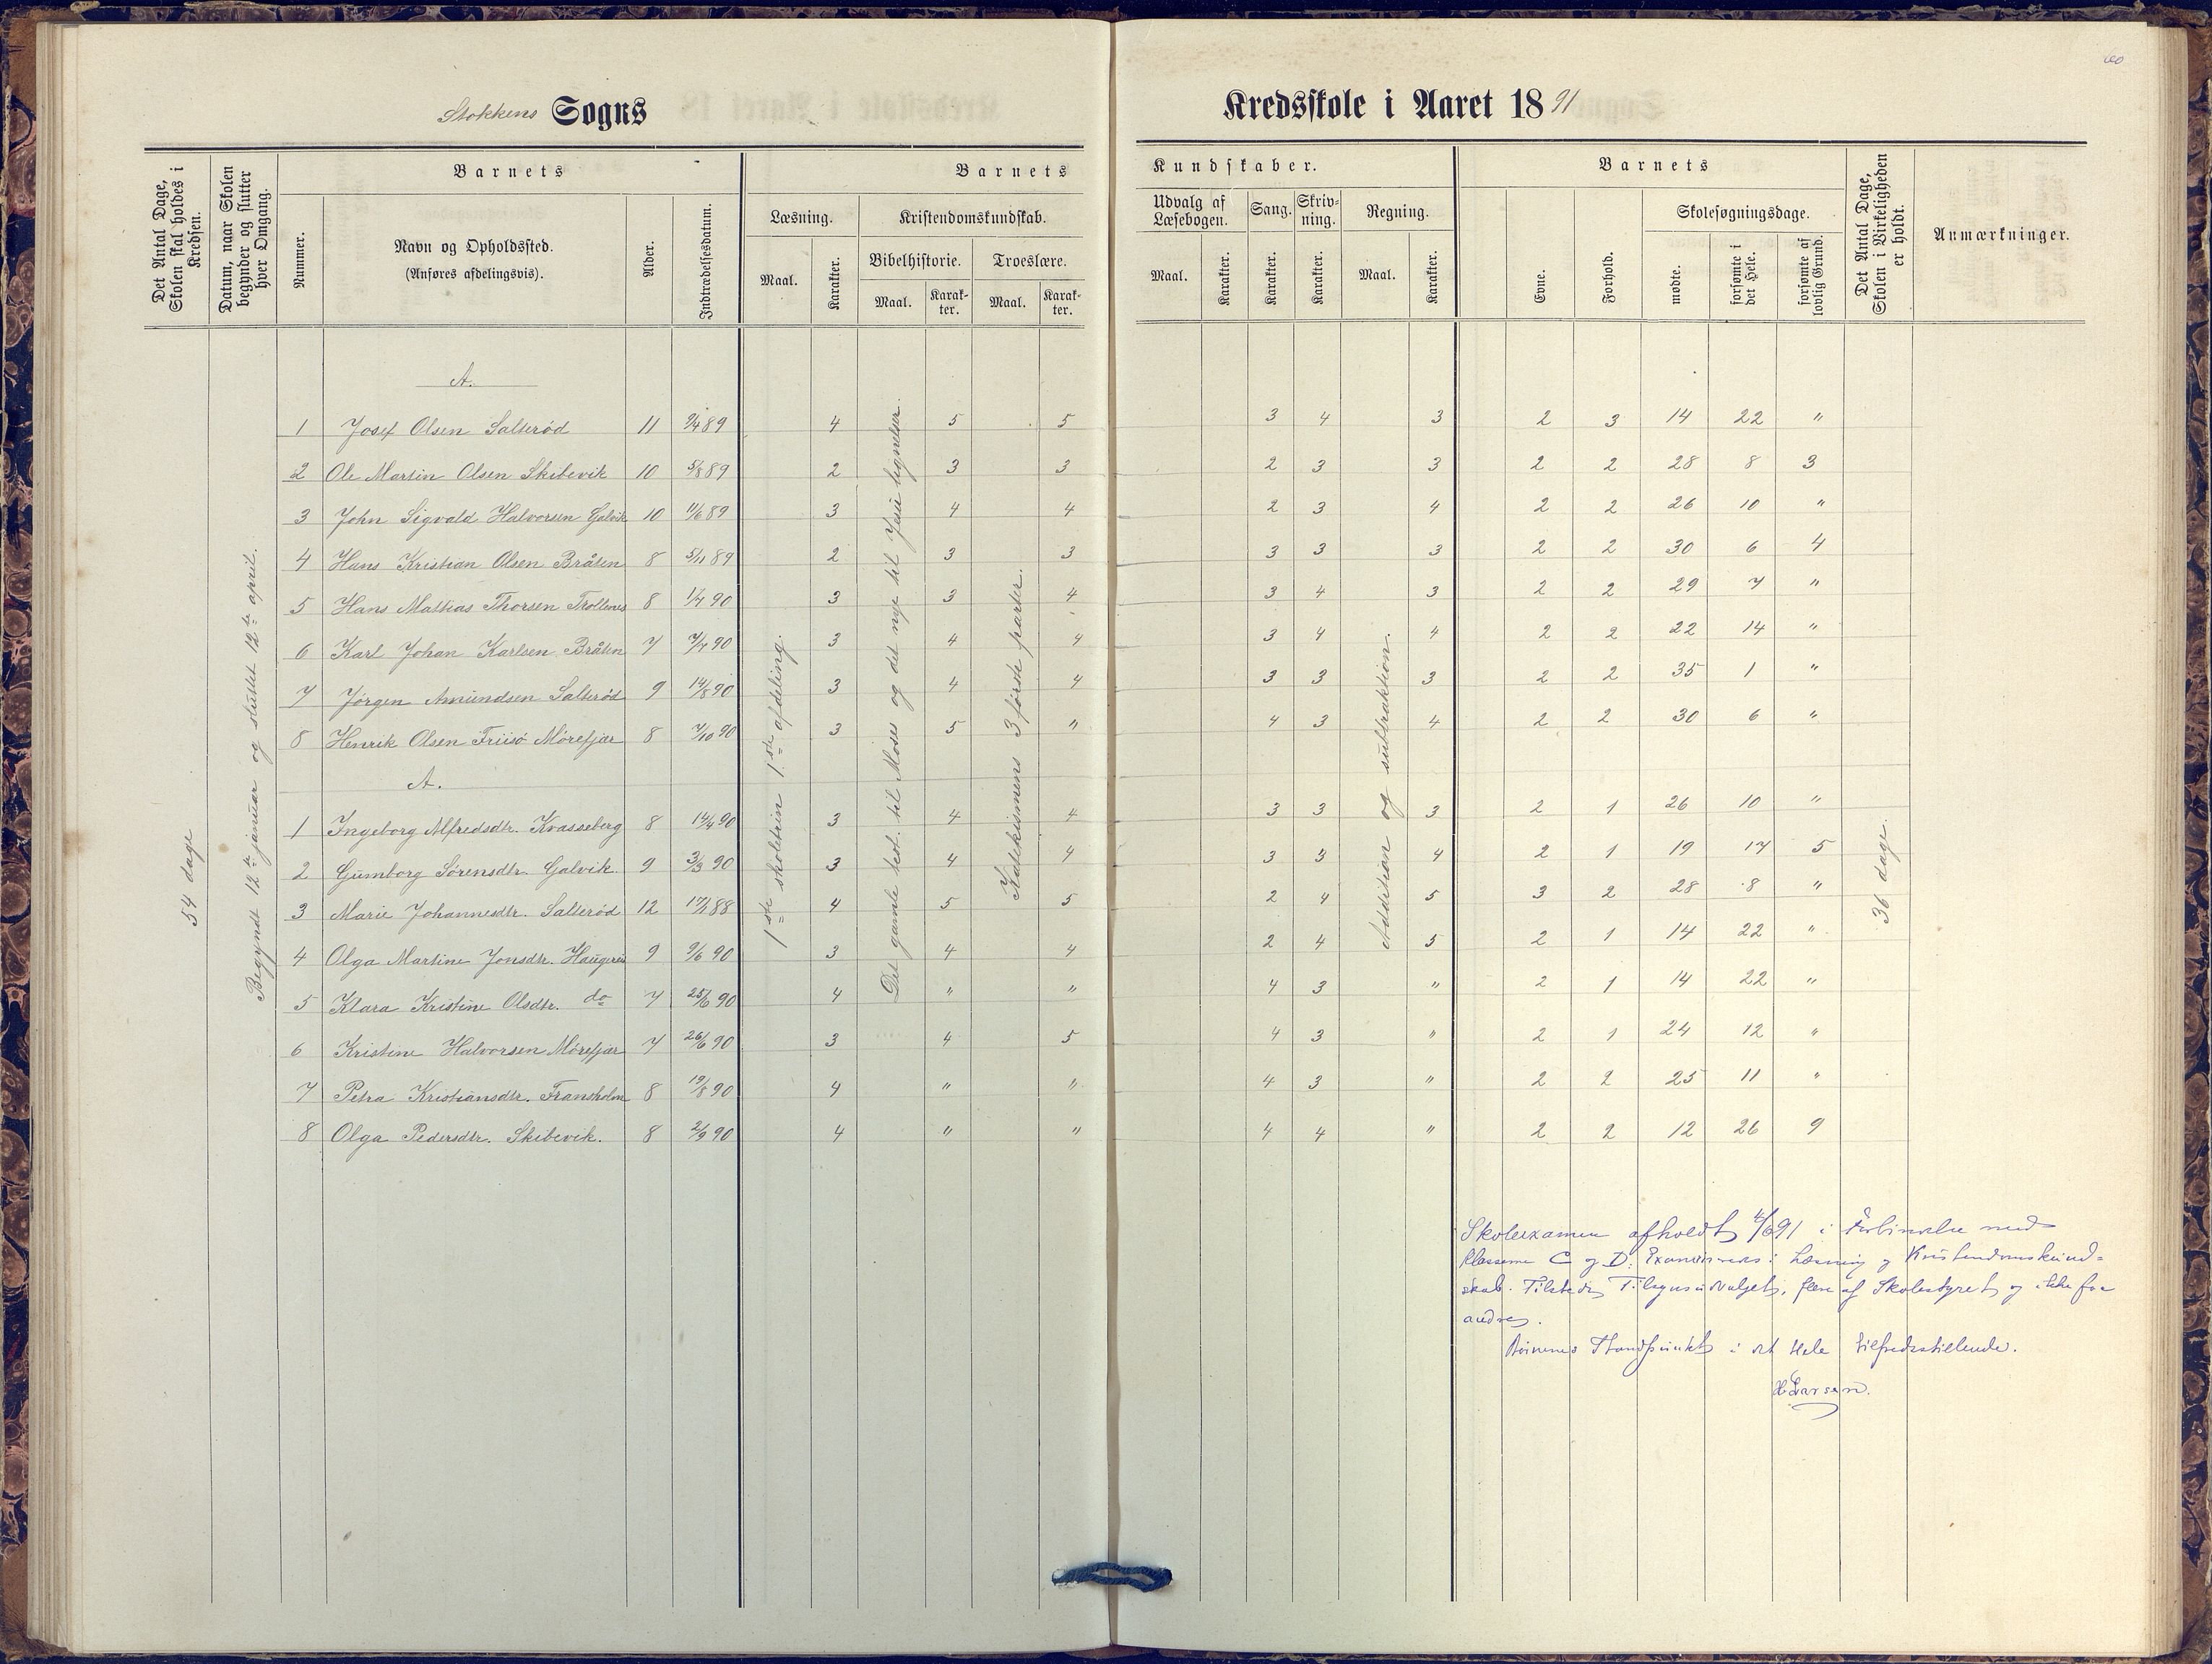 60
Stokkens Sogns Kredsskole i Aaret 1891
Det Antal Dage, Skolen skal holdes i Kredsen.
Datum, naar Skolen begynder og slutter hver Omgang.
Barnets
Nummer.
Navn og Opholdssted.
(Anføres afdelingsvis).
Alder.
Indtrædelsesdatum.
Barnets Kundskaber.
Læsning.
Maal.
Karakter.
Kristendomskundskab.
Bibelhistorie.
Maal.
Karakter.
Troeslære.
Maal.
Karakter.
Udvalg af Læsebogen.
Maal.
Karakter.
Sang.
Karakter.
Skrivning.
Karakter.
Regning.
Maal.
Karakter.
Barnets
Evne.
Forhold.
Skolesøgningsdage.
mødte.
forsømte i det Hele.
forsømte af lovlig Grund.
Det Antal Dage, Skolen i Virkeligheden er holdt.
Anmærkninger.
54 dage
Begyndt 12te januar og sluttet 12te april.
1ste skoletrin 1ste afdeling.
Det gamle test. til Moses og det nye til Jesu lignelser.
Katekismens 3 første parter.
Addition og subtraktion.
36 dage.
A.
1 Josef Olsen Salterød 11 9/4 89 4 5 5 3 4 3 2 3 14 22 "
2 Ole Martin Olsen Skibevik 10 5/8 89 2 3 3 2 3 3 2 2 28 8 3
3 John Sigvald Halvorsen Galvik 10 11/6 89 3 4 4 2 3 4 2 2 26 10 "
4 Hans Kristian Olsen Bråten 8 5/11 89 2 3 3 3 3 3 2 2 30 6 4
5 Hans Mattias Thorsen Trollenes 8 1/7 90 3 3 4 3 4 3 2 2 29 7 "
6 Karl Johan Karlsen Bråten 7 7/7 90 3 4 4 3 4 4 2 2 22 14 "
7 Jørgen Amundsen Salterød 9 14/8 90 3 4 4 3 3 3 2 2 35 1 "
8 Henrik Olsen Friisø Mørefjær 8 7/10 90 3 5 " 4 3 4 2 2 30 6 "
A.
1 Ingeborg Alfredsdtr. Kvasseberg 8 14/4 90 3 4 4 3 3 3 2 1 26 10 "
2 Gumborg Sørensdtr. Galvik. 9 3/3 90 3 4 4 3 3 4 2 1 19 17 5
3 Marie Johannesdtr. Salterød 12 17/1 88 4 5 5 2 4 5 3 2 28 8 "
4 Olga Martine Jonsdtr. Haugenes 9 9/6 90 3 4 4 2 4 5 2 1 14 22 "
5 Klara Kristine Olsdtr. do 7 25/6 90 4 " " 4 3 " 2 1 14 22 "
6 Kristine Halvorsen Mørefjær 7 26/6 90 3 4 5 4 3 " 2 1 24 12 "
7 Petra Kristiansdtr. Fransholm 8 19/8 90 4 " " 4 3 " 2 2 25 11 "
8 Olga Pedersdtr. Skibevik. 8 2/9 90 4 " " 4 4 " 2 2 12 26 9
Skoleexamen afholdt 4/6 91 i Forbindelse med
klasserne C og D. Examineres i Læsning og Kristendomskund-
skab. Tilstede Tilsynsudvalget, flere af Skolestyret og ikke faa
andre.
Børnenes Standpunkt i det Hele tilfredsstillende.
H Larsen.